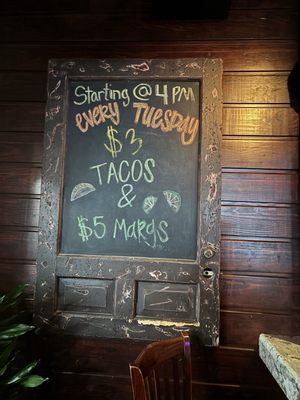 Starting @ 4 PM
every Tuesday
$3
TACOS
&
$5 Margs